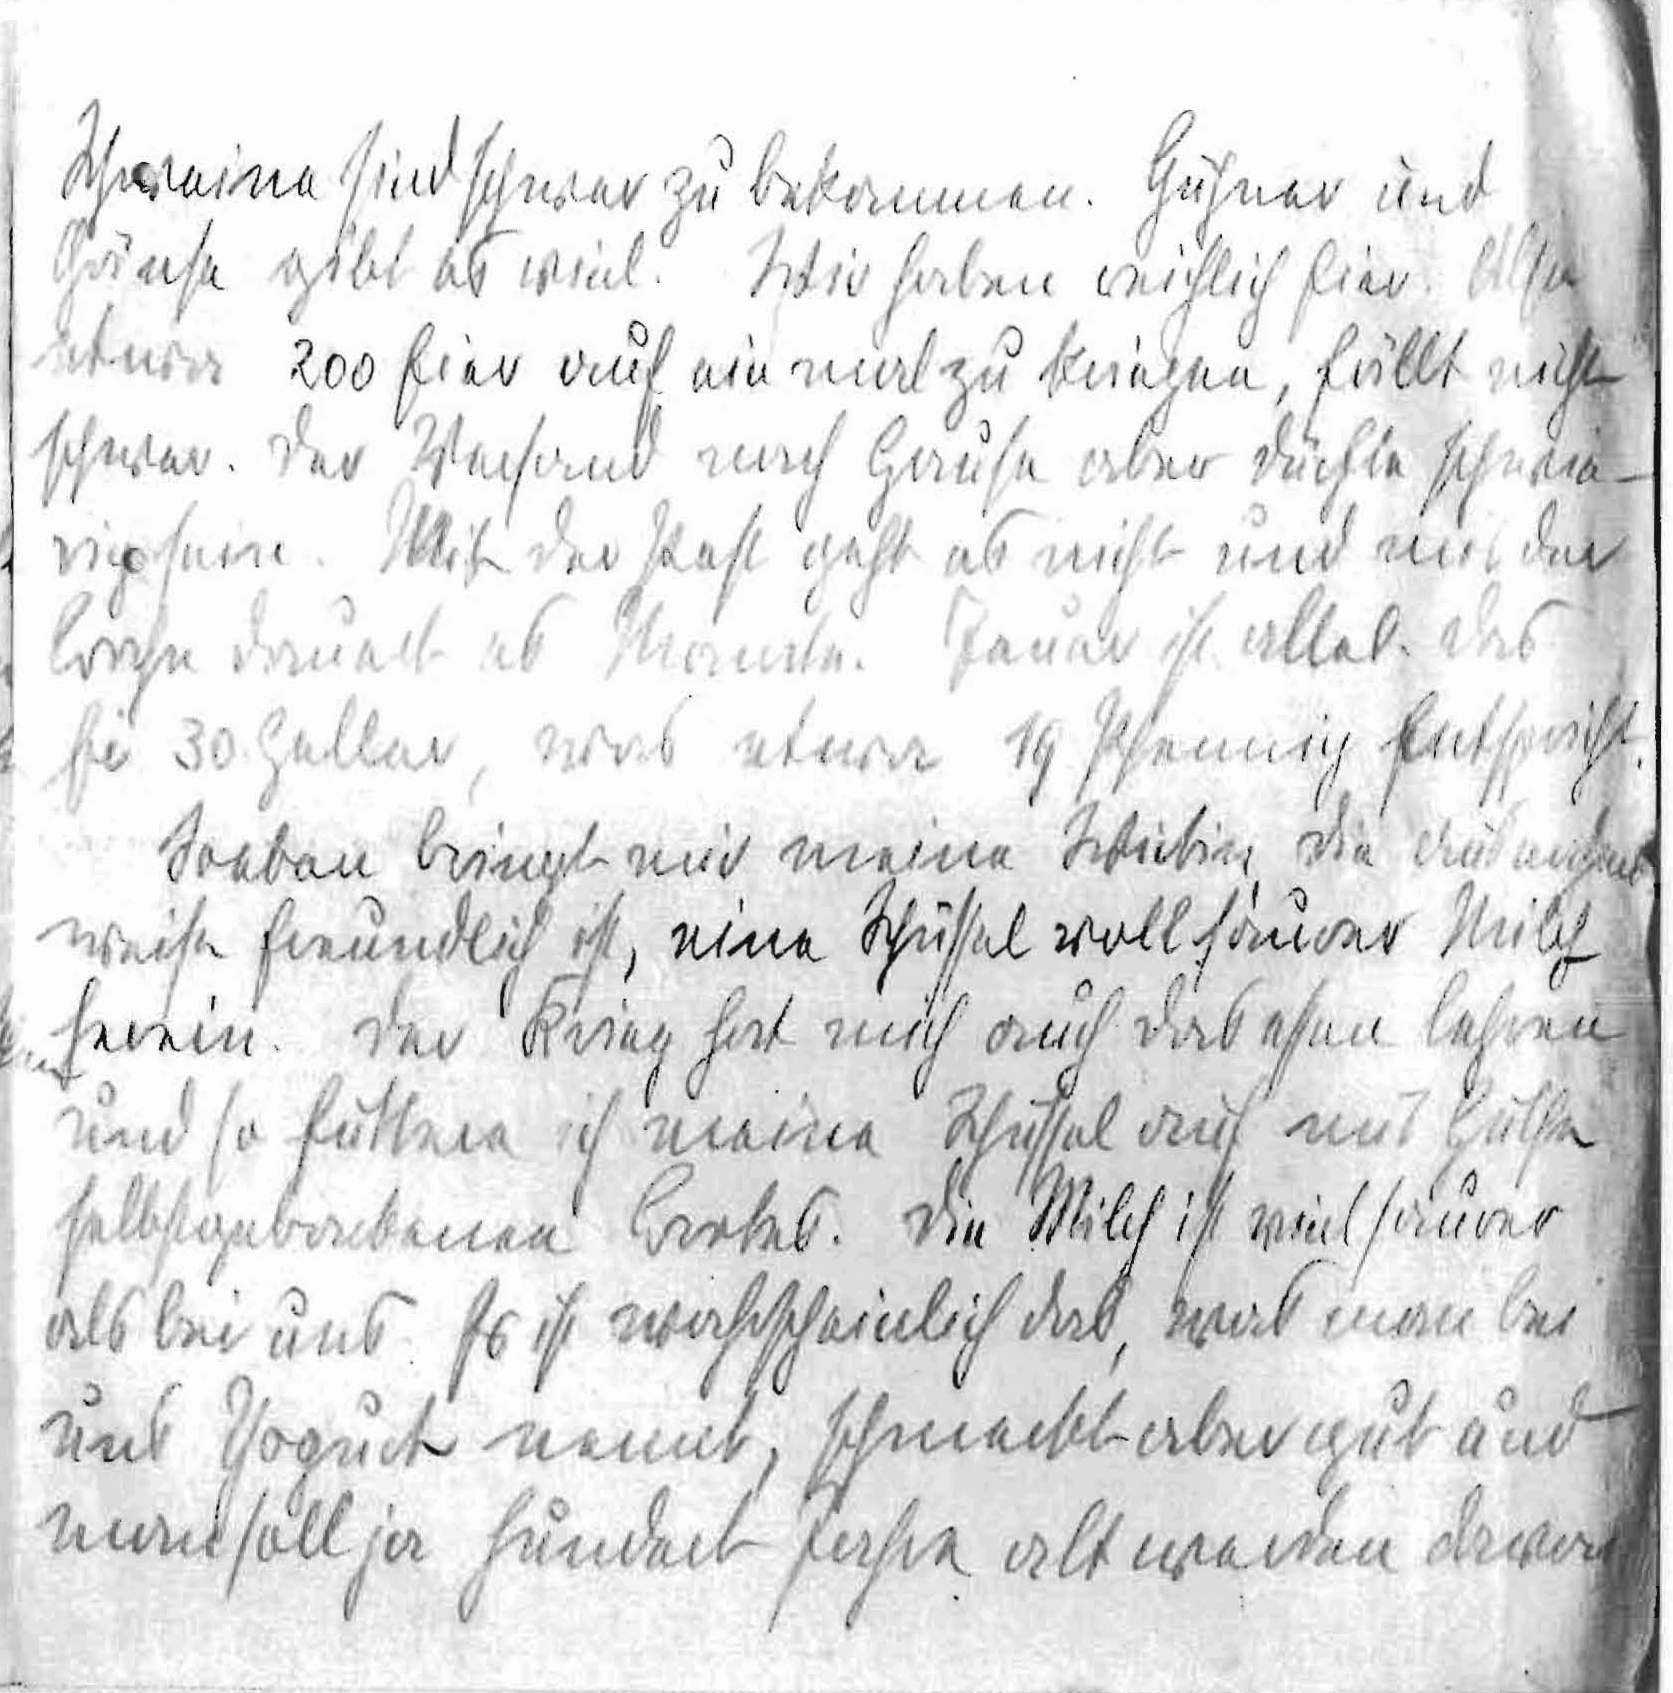 Schweine sind schwer zu bekommen. Hühner und
Gänse gibt es viel. Wir haben reichlich Eier. Also
etwa 200 Eier auf ein mal zu kriegen, fällt nicht
schwer. Der Versand nach Hause aber dürfte schwie-
rig sein. Mit der Post geht es nicht und mit der
Bahn dauert es Monate. Teuer ist alles. Das
Ei 30 Heller, was etwa 19 Pfennig Entspricht.
Soeben bringt mir meine Wirtin, die
weise freundlich ist, eine Schüssel voll saurer Milch
herein. Der Krieg hat mich auch das essen lehren
und so futtere ich meine Schüssel auf mit Hülfe
selbstgebackenen Brotes. Die Milch ist viel saurer
als bei uns. Es ist wahrscheinlich das, was man bei
uns Yogurt nennt, schmeckt aber gut und
man soll ja hundert Jahre alt werden davon